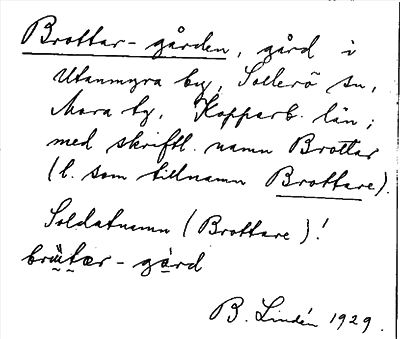 Brottar-gården, gård i
Utanmyra by, Sollerö sn,
Mora tg, Kopparb. län;
med skriftl. namn Brottar
(l. som tillnamn Brottare).
Soldatnamn (Brottare)!
- gård
B. Lindén 1929.